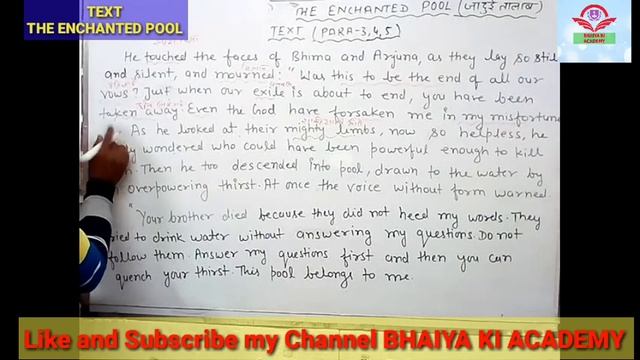 TEXT
THE ENCHANTED POOL
THE ENCHANTED POOL (जादुई तालाब)
BHAIYA KI ACADEMY
TEXT (PARA-3,4,5)
He touched the faces of Bhima and Arjuna, as they lay so still
and silent, and mourned: "Was this to be the end of all our
vows? Just when our exile is about to end, you have been
taken away. Even the God have forsaken me in my misfortune
As he looked at their mighty limbs, now so helpless, he
wondered who could have been powerful enough to kill
Then he too descended into pool, drawn to the water by
overpowering thirst. At once the voice without form warned.
"Your brother died because they did not heed my words. They
to drink water without answering my questions. Do not
follow them. Answer my questions first and then you can
quench your thirst. This pool belongs to me.
Like and Subscribe my Channel BHAIYA KI ACADEMY